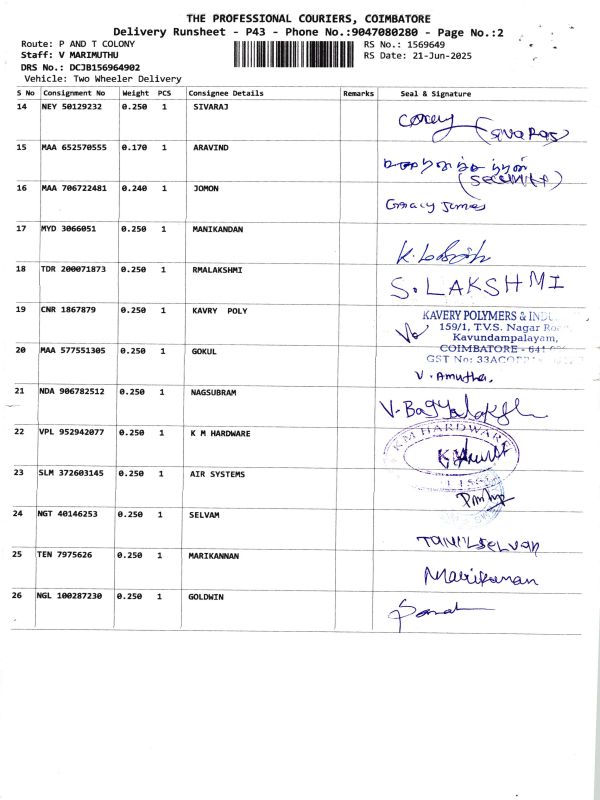 THE PROFESSIONAL COURIERS, COIMBATORE
Delivery Runsheet - P43 - Phone No.:9047080280 - Page No.:2
Route: P AND T COLONY RS No.: 1569649
Staff: V MARIMUTHU RS Date: 21-Jun-2025
DRS No.: DCJB156964902
Vehicle: Two Wheeler Delivery
S No Consignment No Weight PCS Consignee Details Remarks Seal & Signature
14 NEY 50129232 0.250 1 SIVARAJ
15 MAA 652570555 0.170 1 ARAVIND
(Security)
16 MAA 706722481 0.240 1 JOMON
Gracy James
17 MYD 3066051 0.250 1 MANIKANDAN
18 TDR 200071873 0.250 1 RMALAKSHMI
S. LAKSHMI
19 CNR 1867879 0.250 1 KAVRY POLY
KAVERY POLYMERS &
159/1, T.V.S. Nagar
Kavundampalayam,
COIMBATORE - 641
GST No:
20 MAA 577551305 0.250 1 GOKUL
V. Amutha.
21 NDA 906782512 0.250 1 NAGSUBRAM
22 VPL 952942077 0.250 1 K M HARDWARE
KM HARDWARE
23 SLM 372603145 0.250 1 AIR SYSTEMS
24 NGT 40146253 0.250 1 SELVAM
TAMILSELVAN
25 TEN 7975626 0.250 1 MARIKANNAN
Marikannan
26 NGL 100287230 0.250 1 GOLDWIN